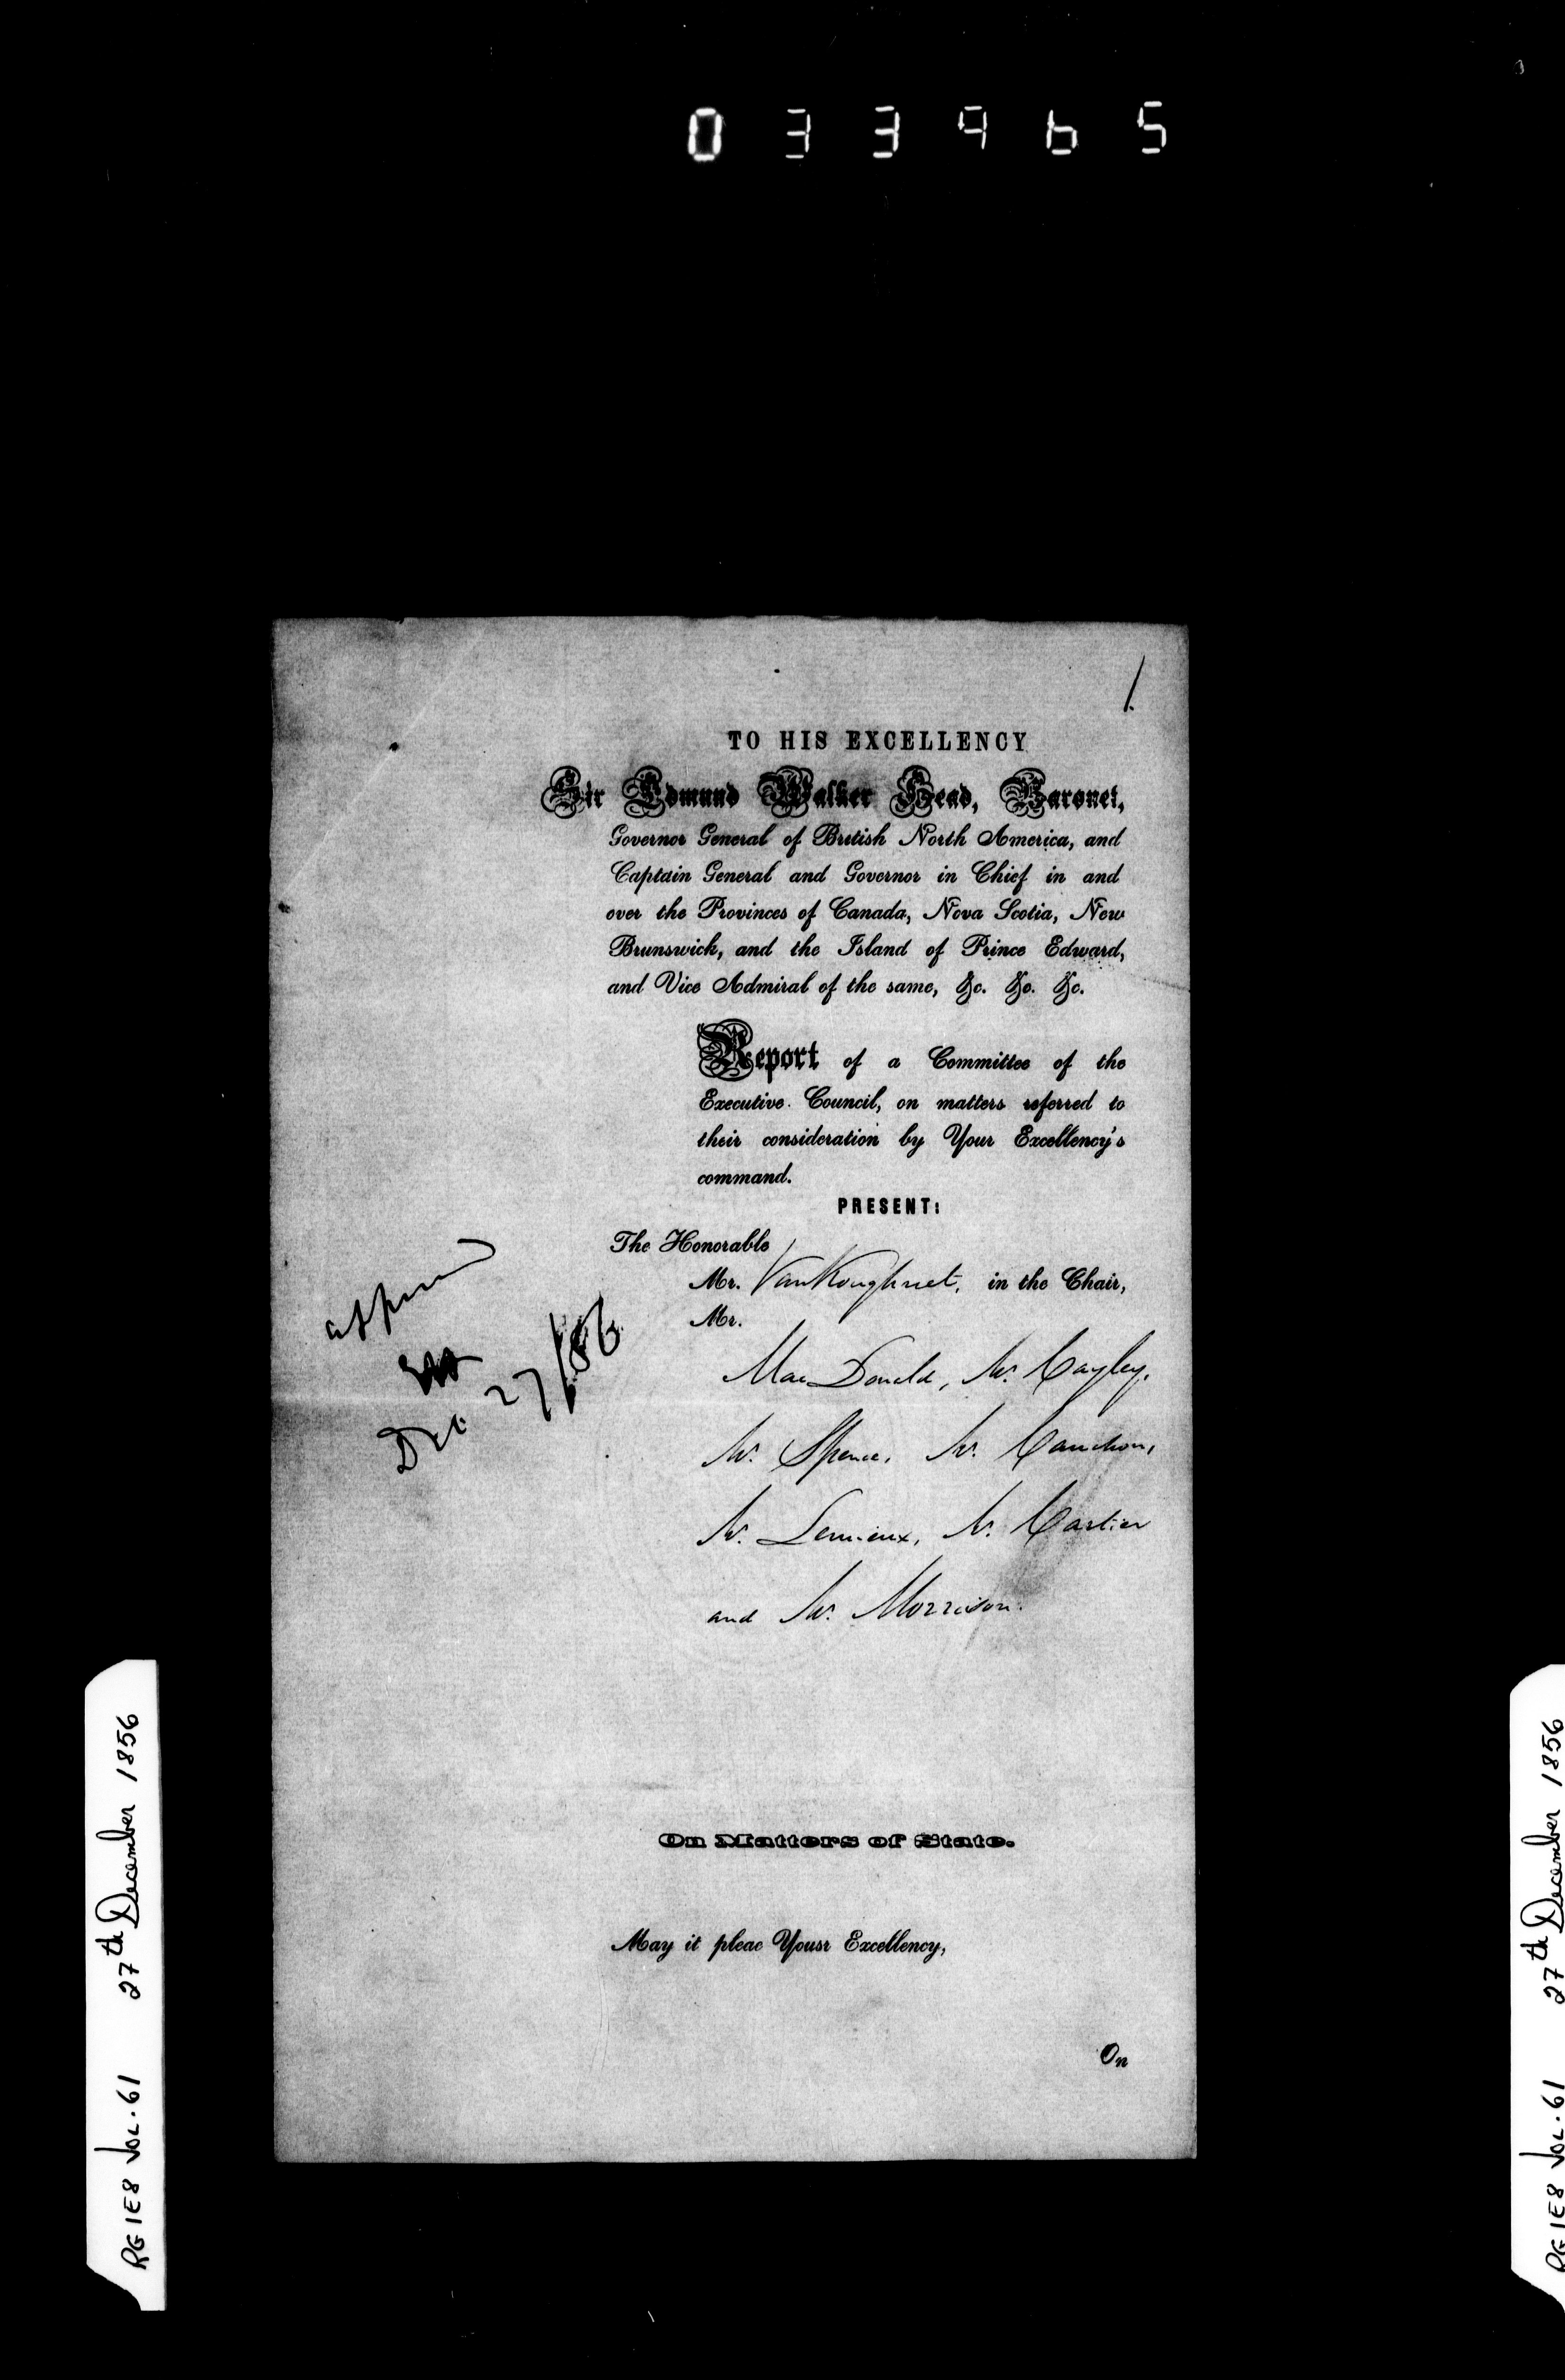 033965
1.
TO HIS EXCELLENCY
Sir Edmund Walker Head, Baronet,
Governor General of British North America, and
Captain General and Governor in Chief in and
over the Provinces of Canada, Nova Scotia, New
Brunswick, and the Island of Prince Edward,
and Vice Admiral of the same, &c. &c. &c.
Report of a Committee of the
Executive Council, on matters referred to
their consideration by Your Excellency's
command.
PRESENT:
The Honorable
Mr. VanKoughnet, in the Chair,
Mr.
MacDonald, Mr. Cayley,
Mr. Spence, Mr. Cauchon,
Mr. Lemieux, Mr. Cartier
and Mr. Morrison.
Dec 27/56
On Matters of State.
May it pleae Yousr Excellency,
On
RG 1E8 VOL. 61 27th December 1856
RG 1E8 VOL. 61 27th December 1856